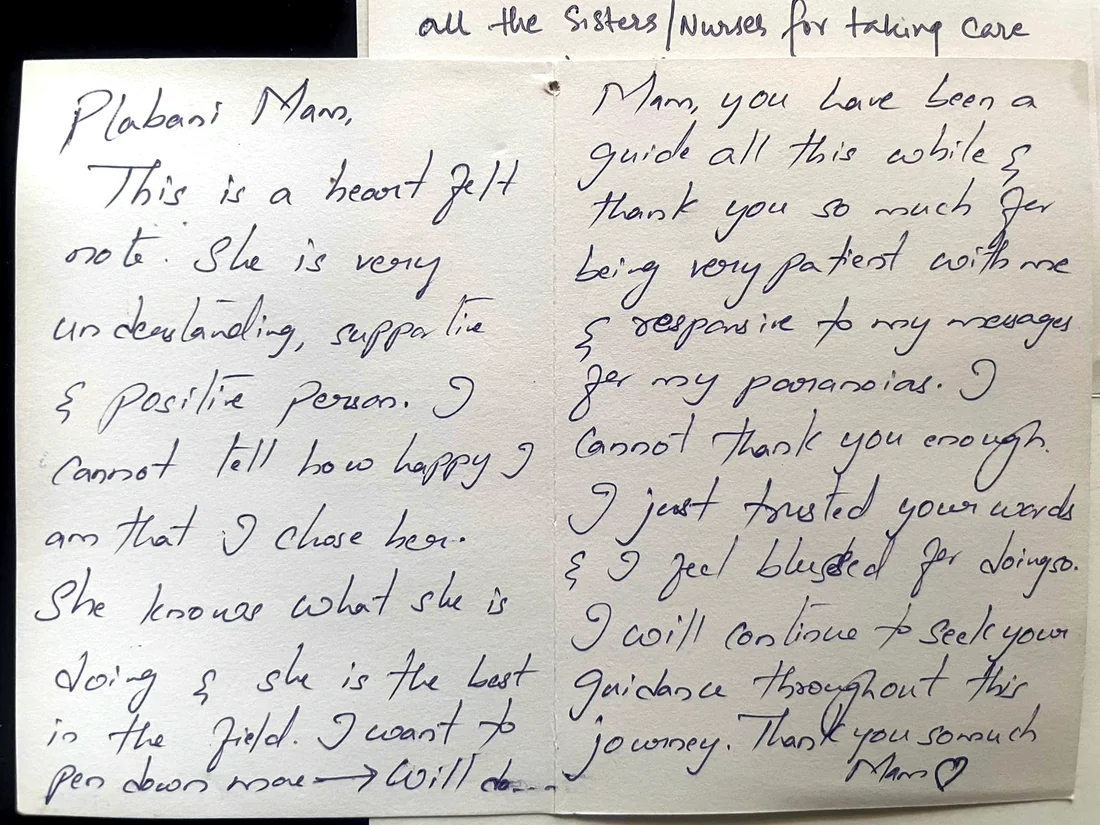 all the Sisters/Nurses for taking care
Plabani Mam,
This is a heart felt
note. She is very
understanding, supportive
& positive person. I
cannot tell how happy I
am that I chose her.
She knows what she is
doing & she is the best
in the field. I want to
pen down more → Will do...
Mam, you have been a
guide all this while &
thank you so much for
being very patient with me
& responsive to my messages
for my paranoias. I
cannot thank you enough.
I just trusted your words
& I feel blessed for doing so.
I will continue to seek your
guidance throughout this
journey. Thank you so much
Mam ♡